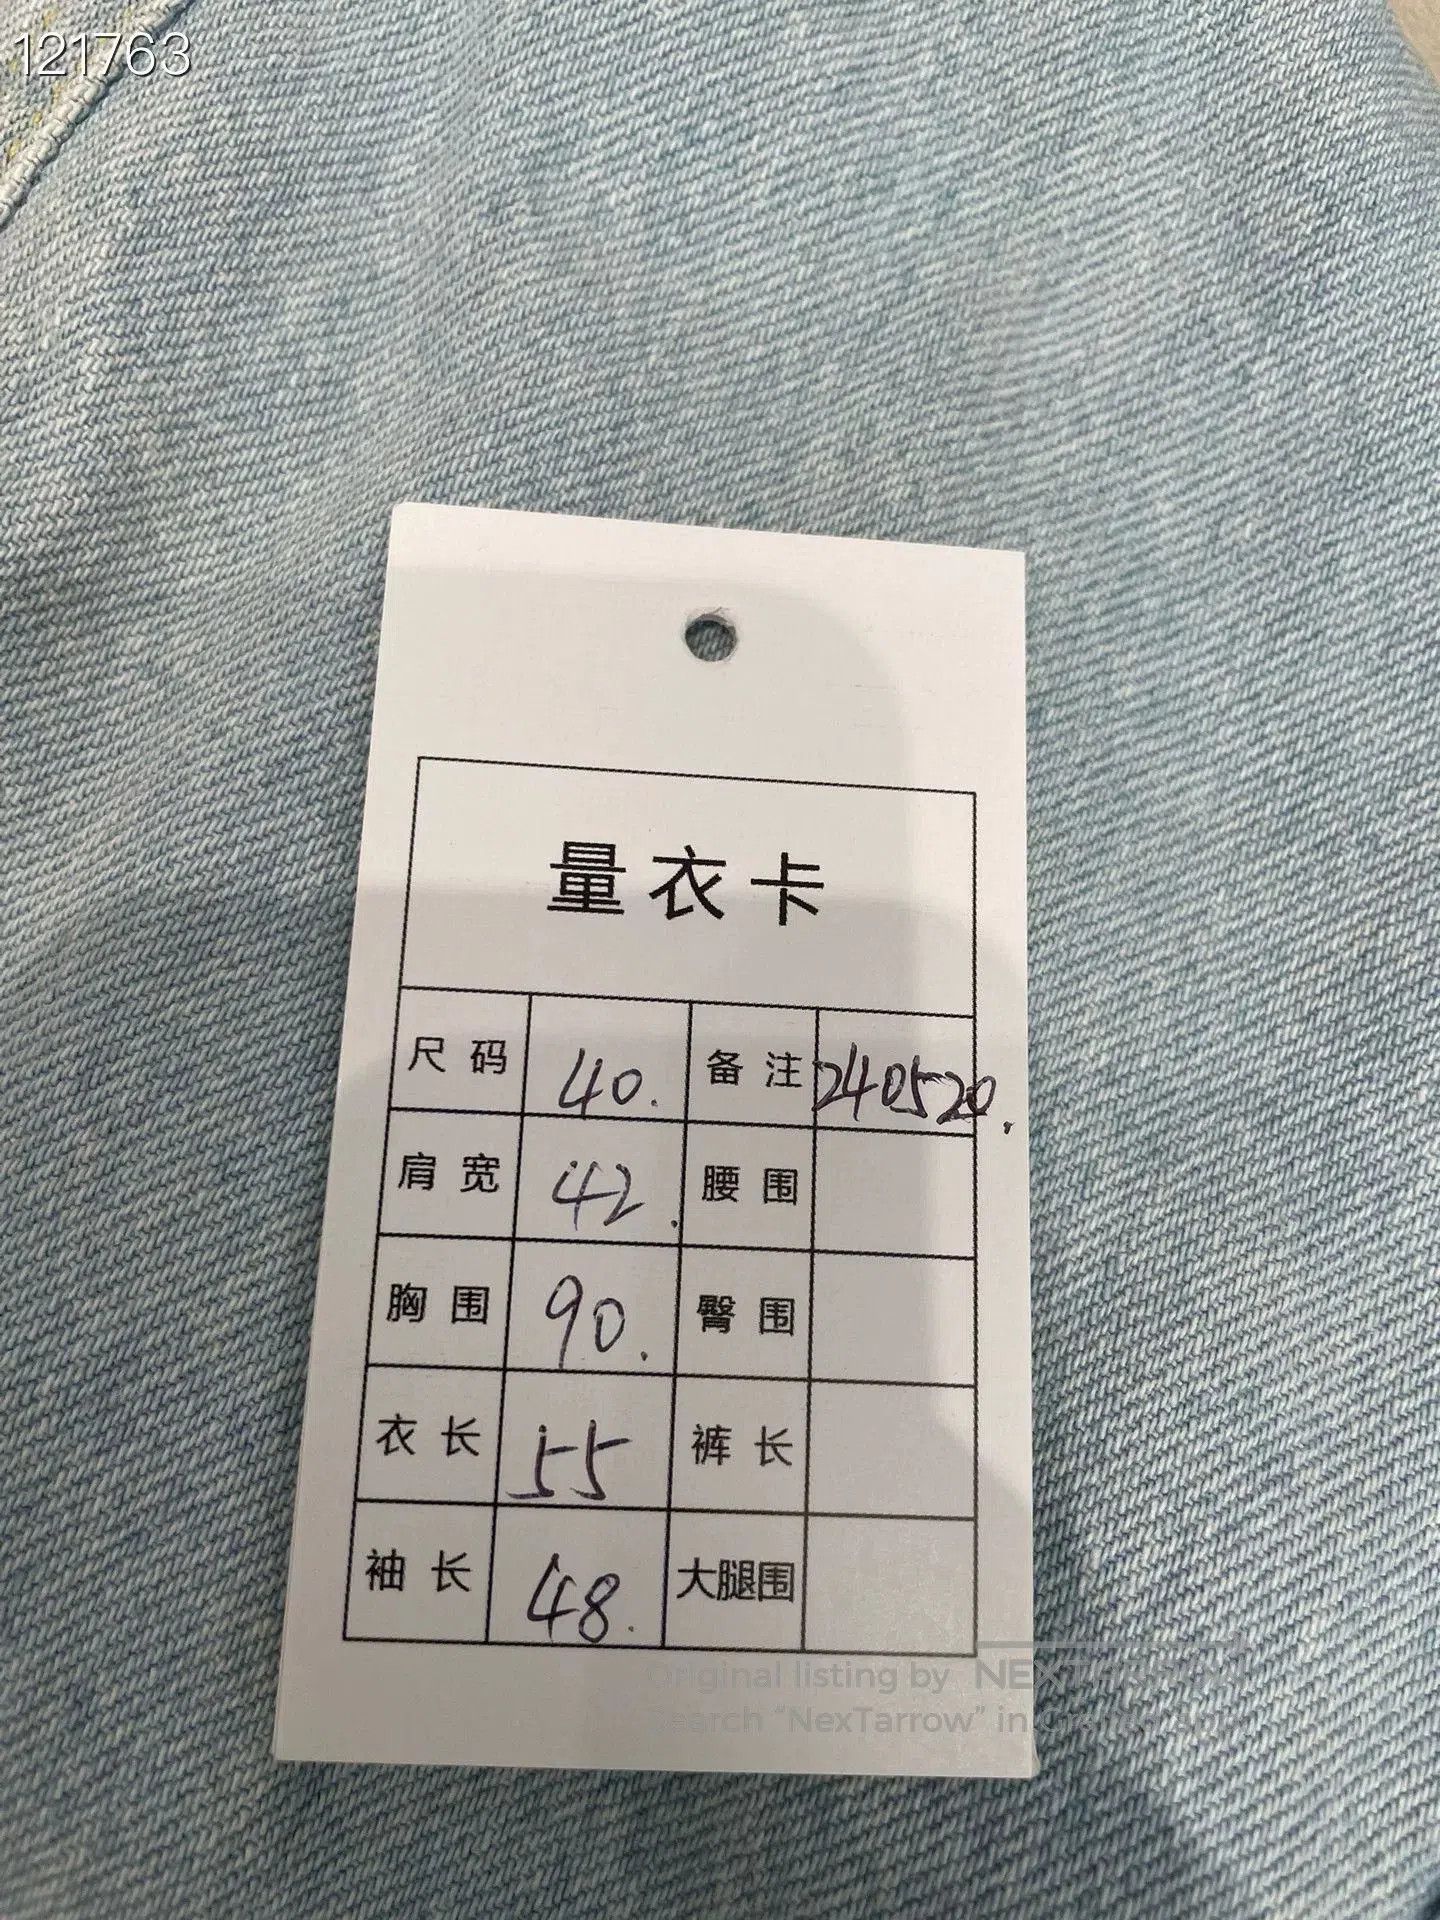 121763
量衣卡
尺码 40. 备注 240520.
肩宽 42. 腰围
胸围 90. 臀围
衣长 55 裤长
袖长 48. 大腿围
Original listing by NEXTARROW
Search "NexTarrow" in